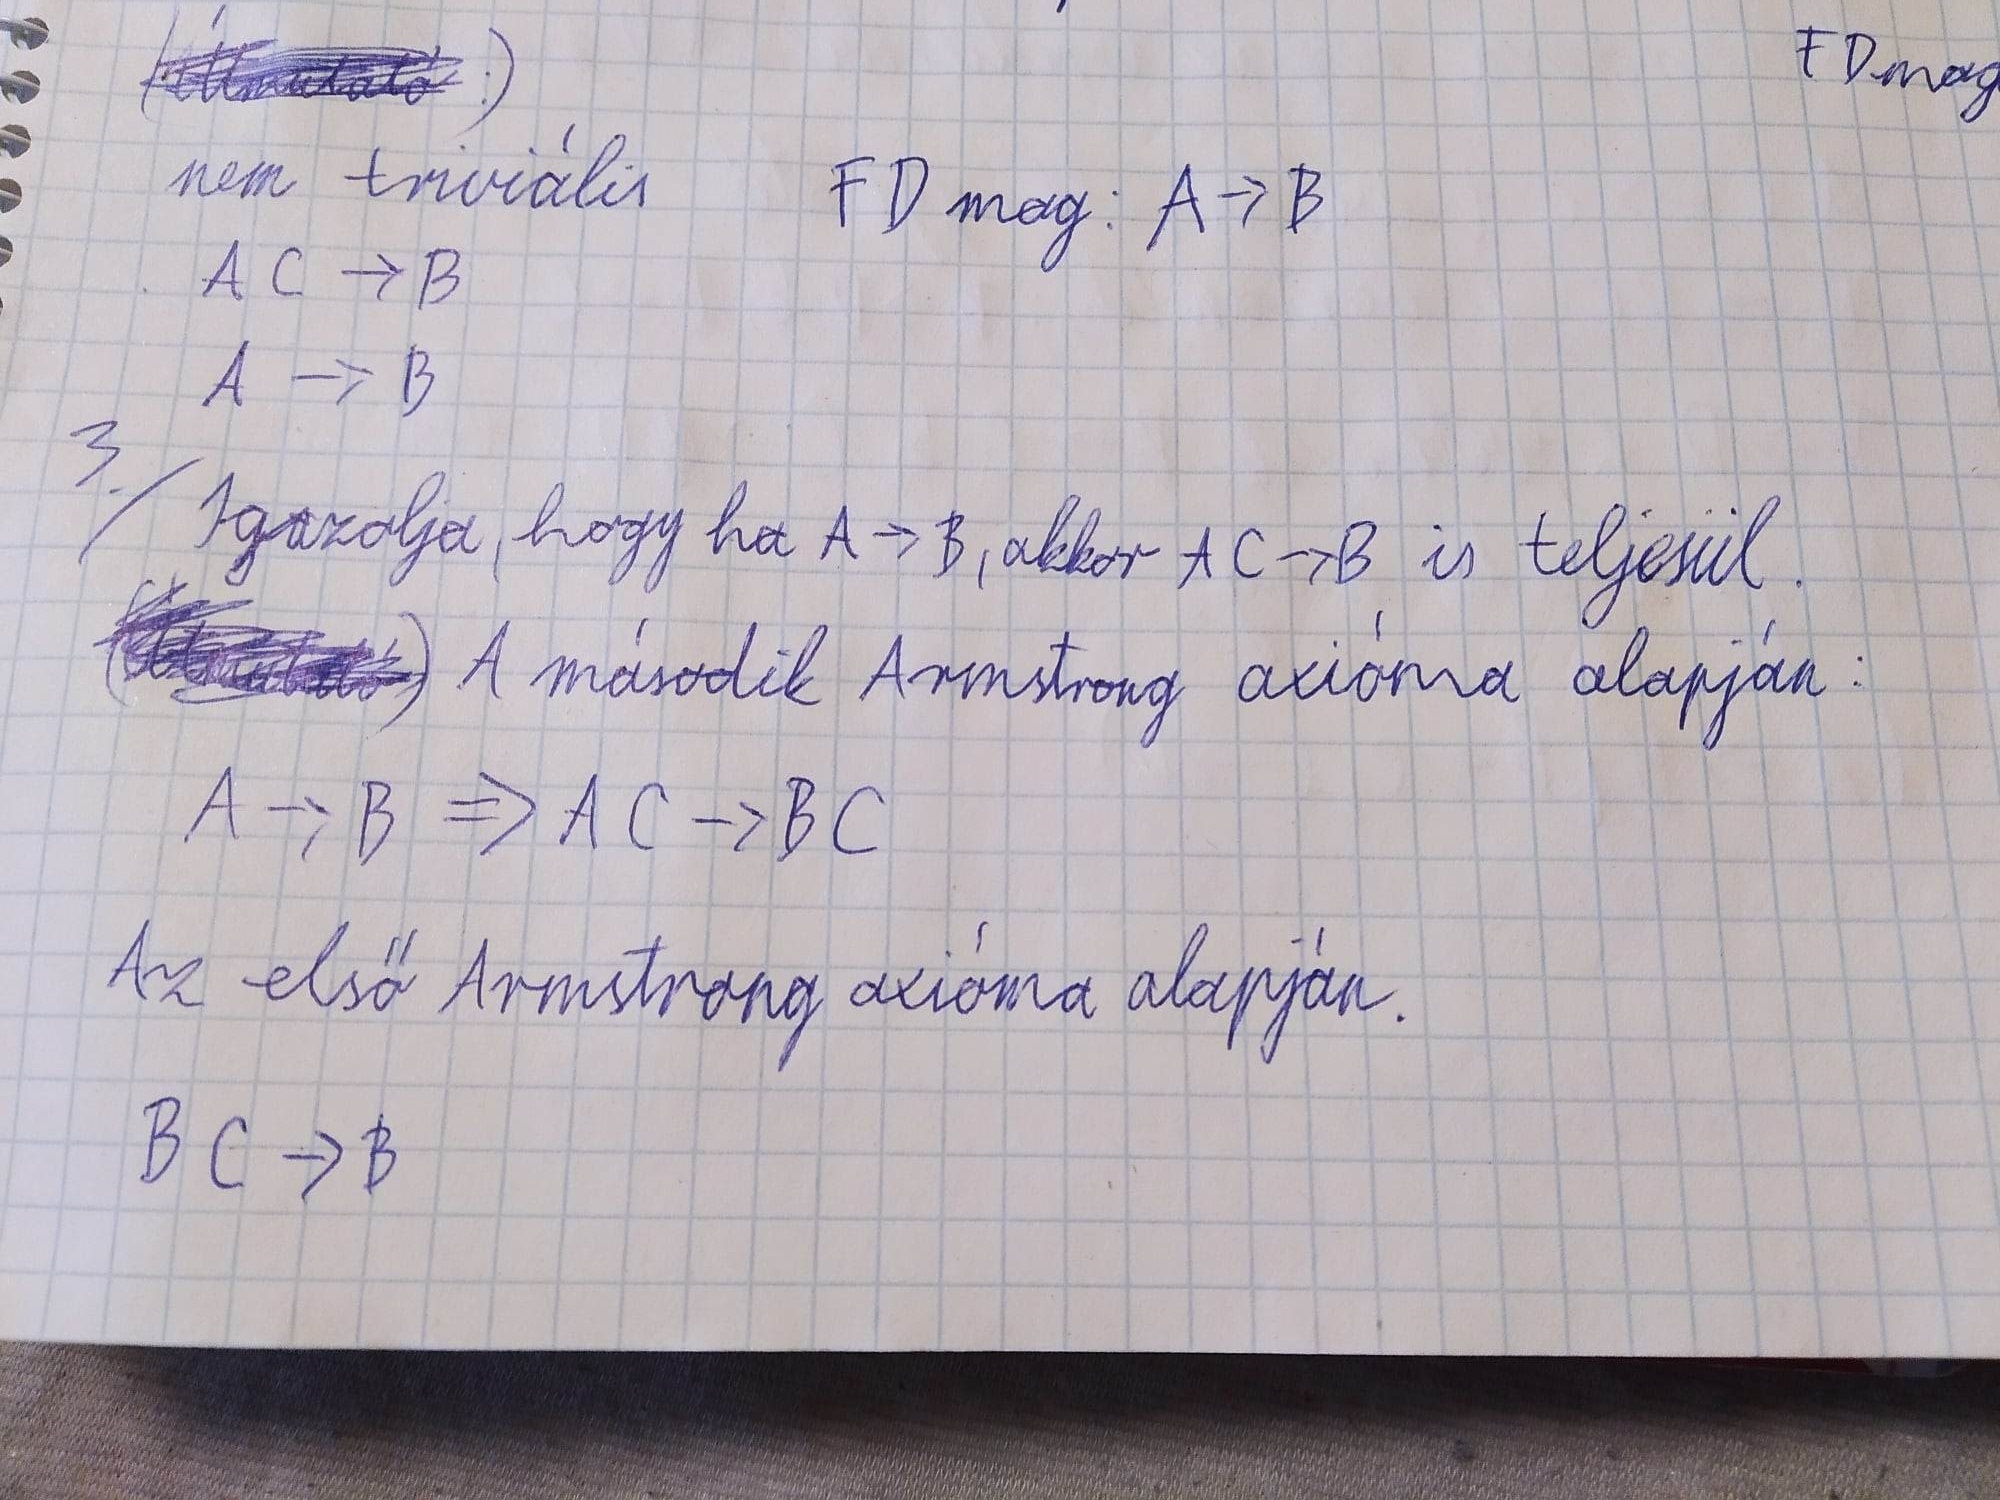 FD mag
nem triviális FD mag: A → B
AC → B
A → B
3./ Igazolja, hogy ha A → B, akkor AC → B is teljesül.
A második Armstrong axióma alapján:
A → B ⇒ AC → BC
Az első Armstrong axióma alapján.
BC → B